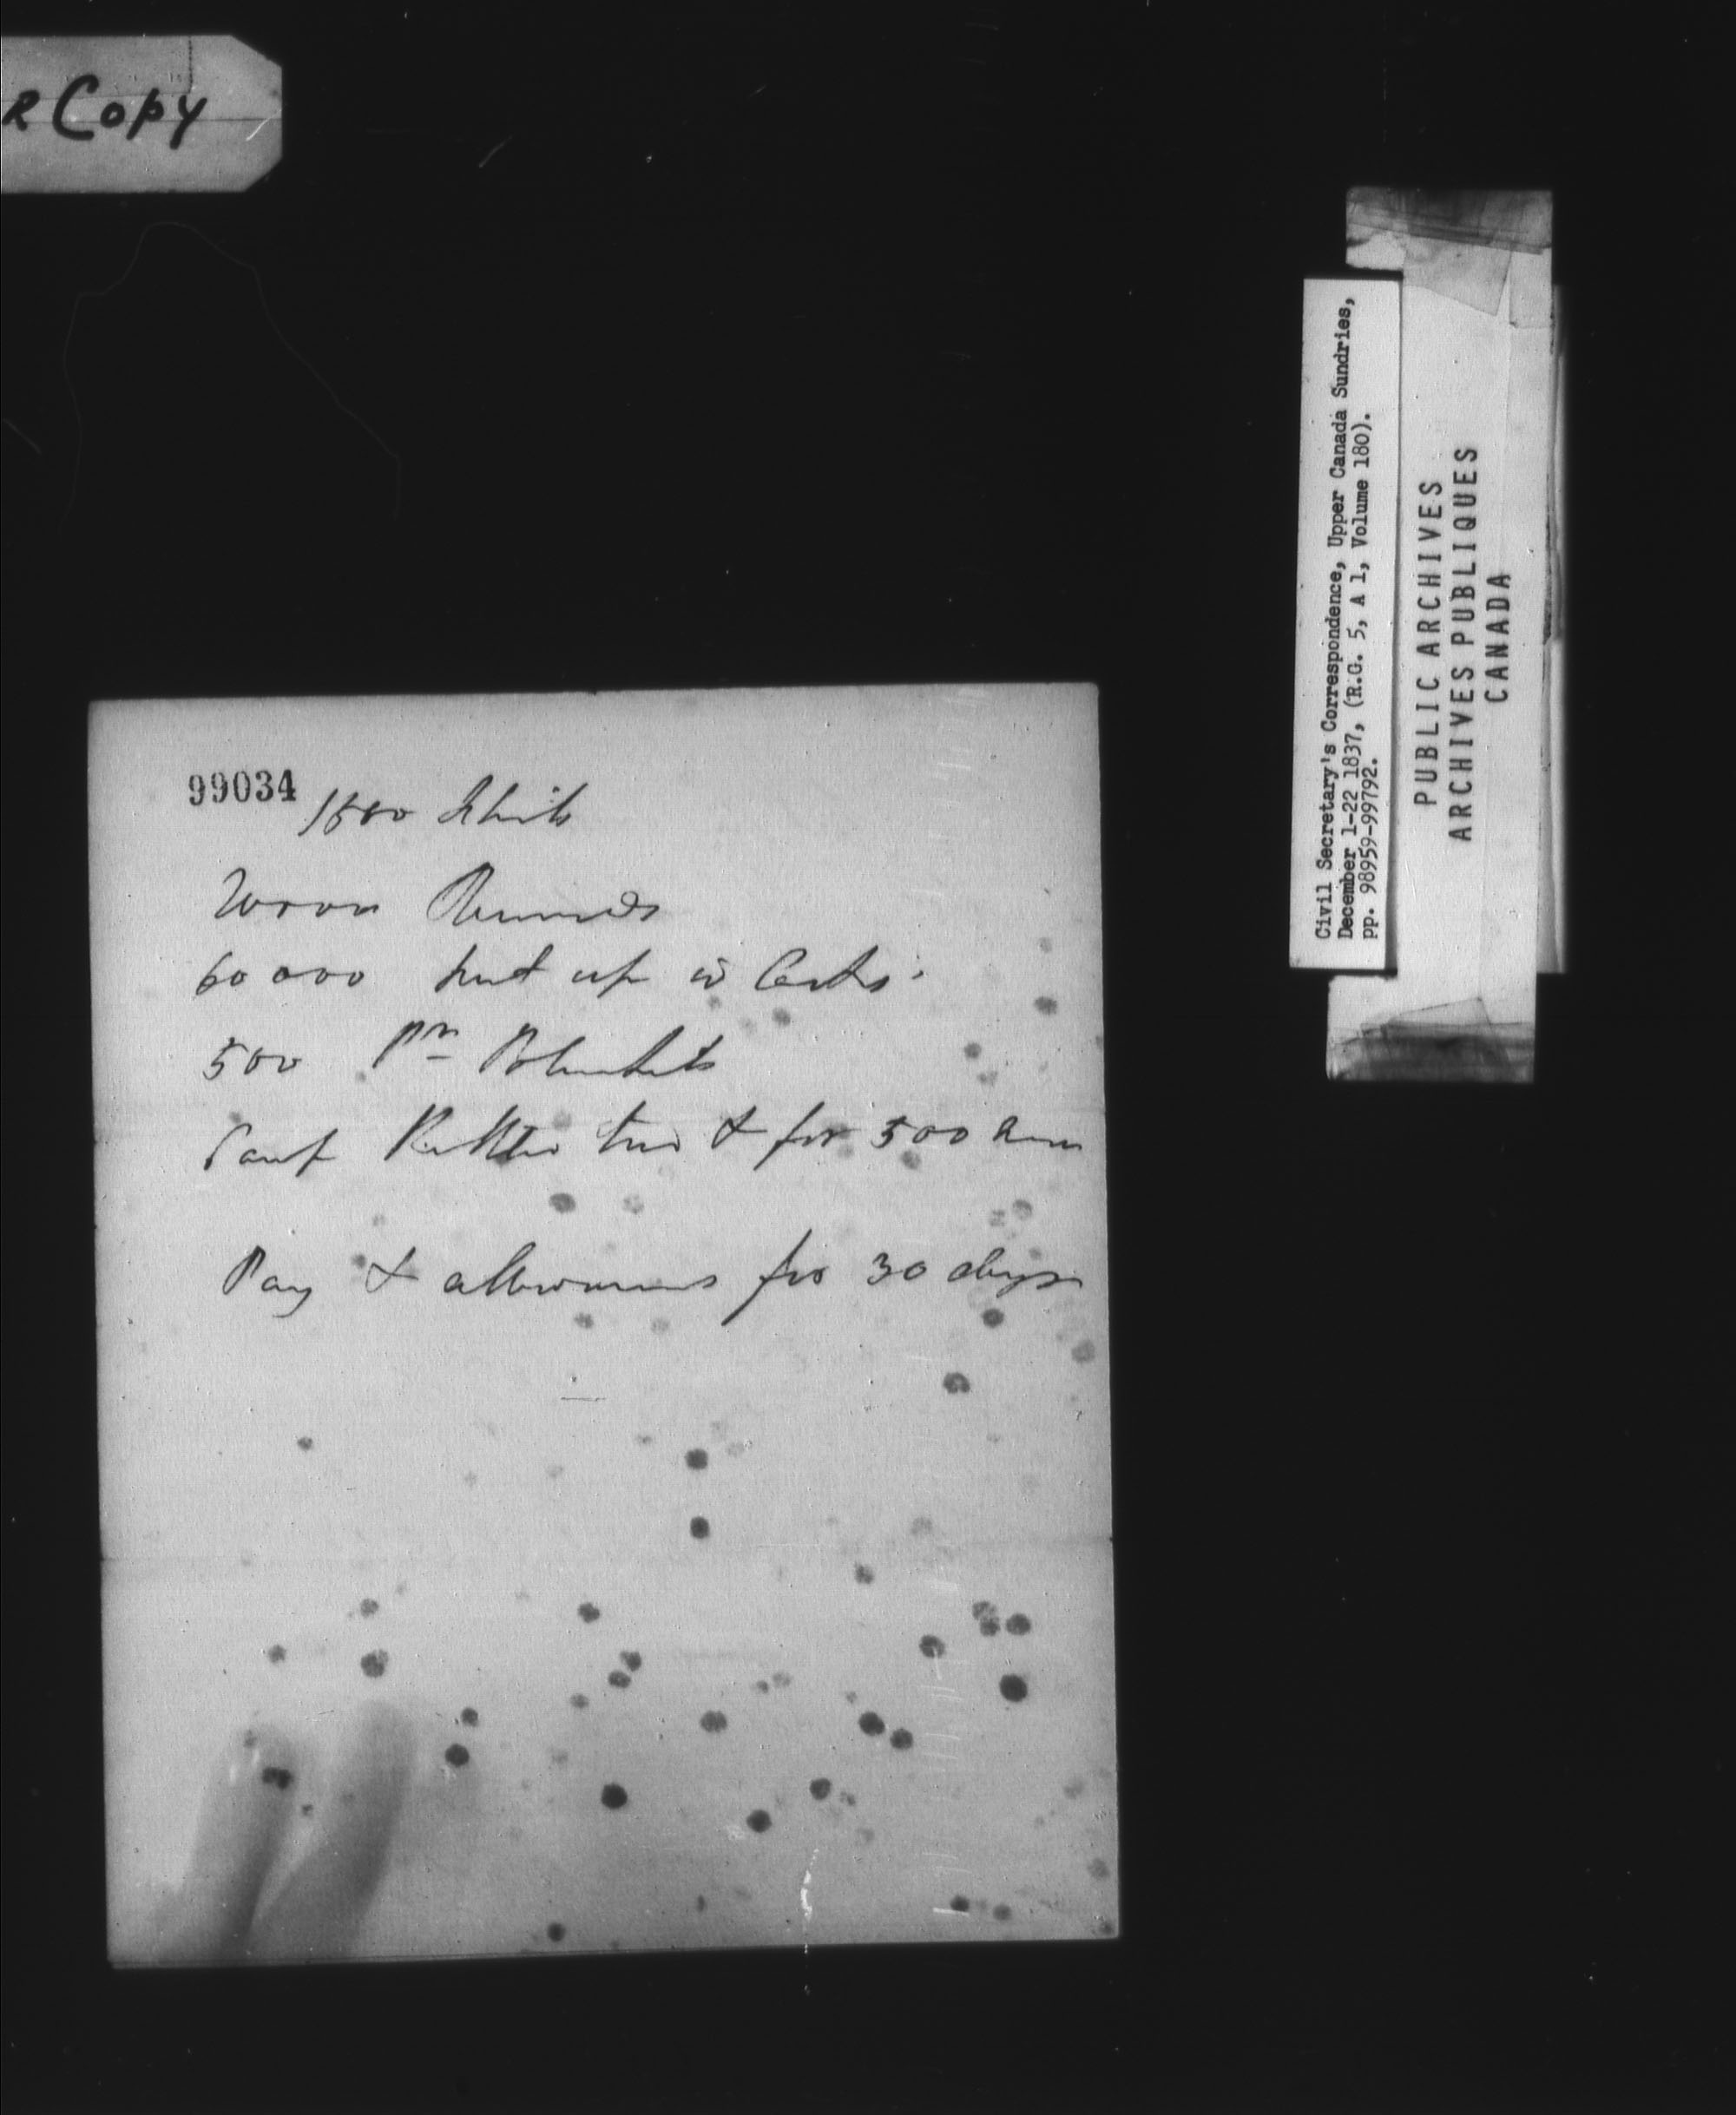 R Copy
99034
1500 Flints
20000 Rounds
60 000 put up in Casks.
500 Pr Blankets
Camp Kettles tins & for 500 men
Pay & allowances for 30 days
Civil Secretary's Correspondence, Upper Canada Sundries,
December 1-22 1837, (R.G. 5, A 1, Volume 180).
pp. 98959-99792.
PUBLIC ARCHIVES
ARCHIVES PUBLIQUES
CANADA